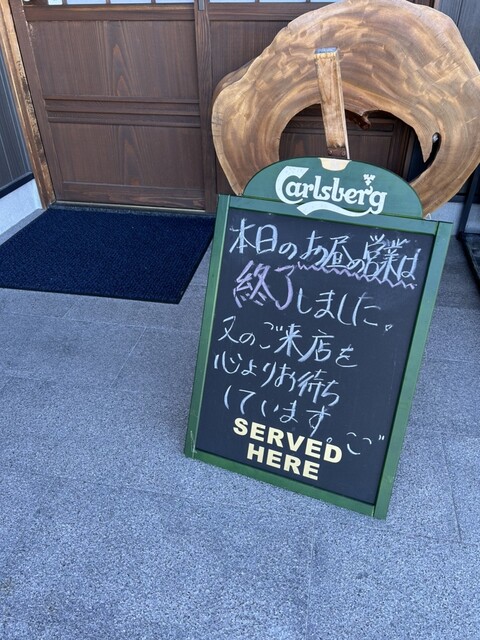 Carlsberg
本日のお昼の営業は
終了しました。
又のご来店を
心よりお待ち
しています。
SERVED
HERE